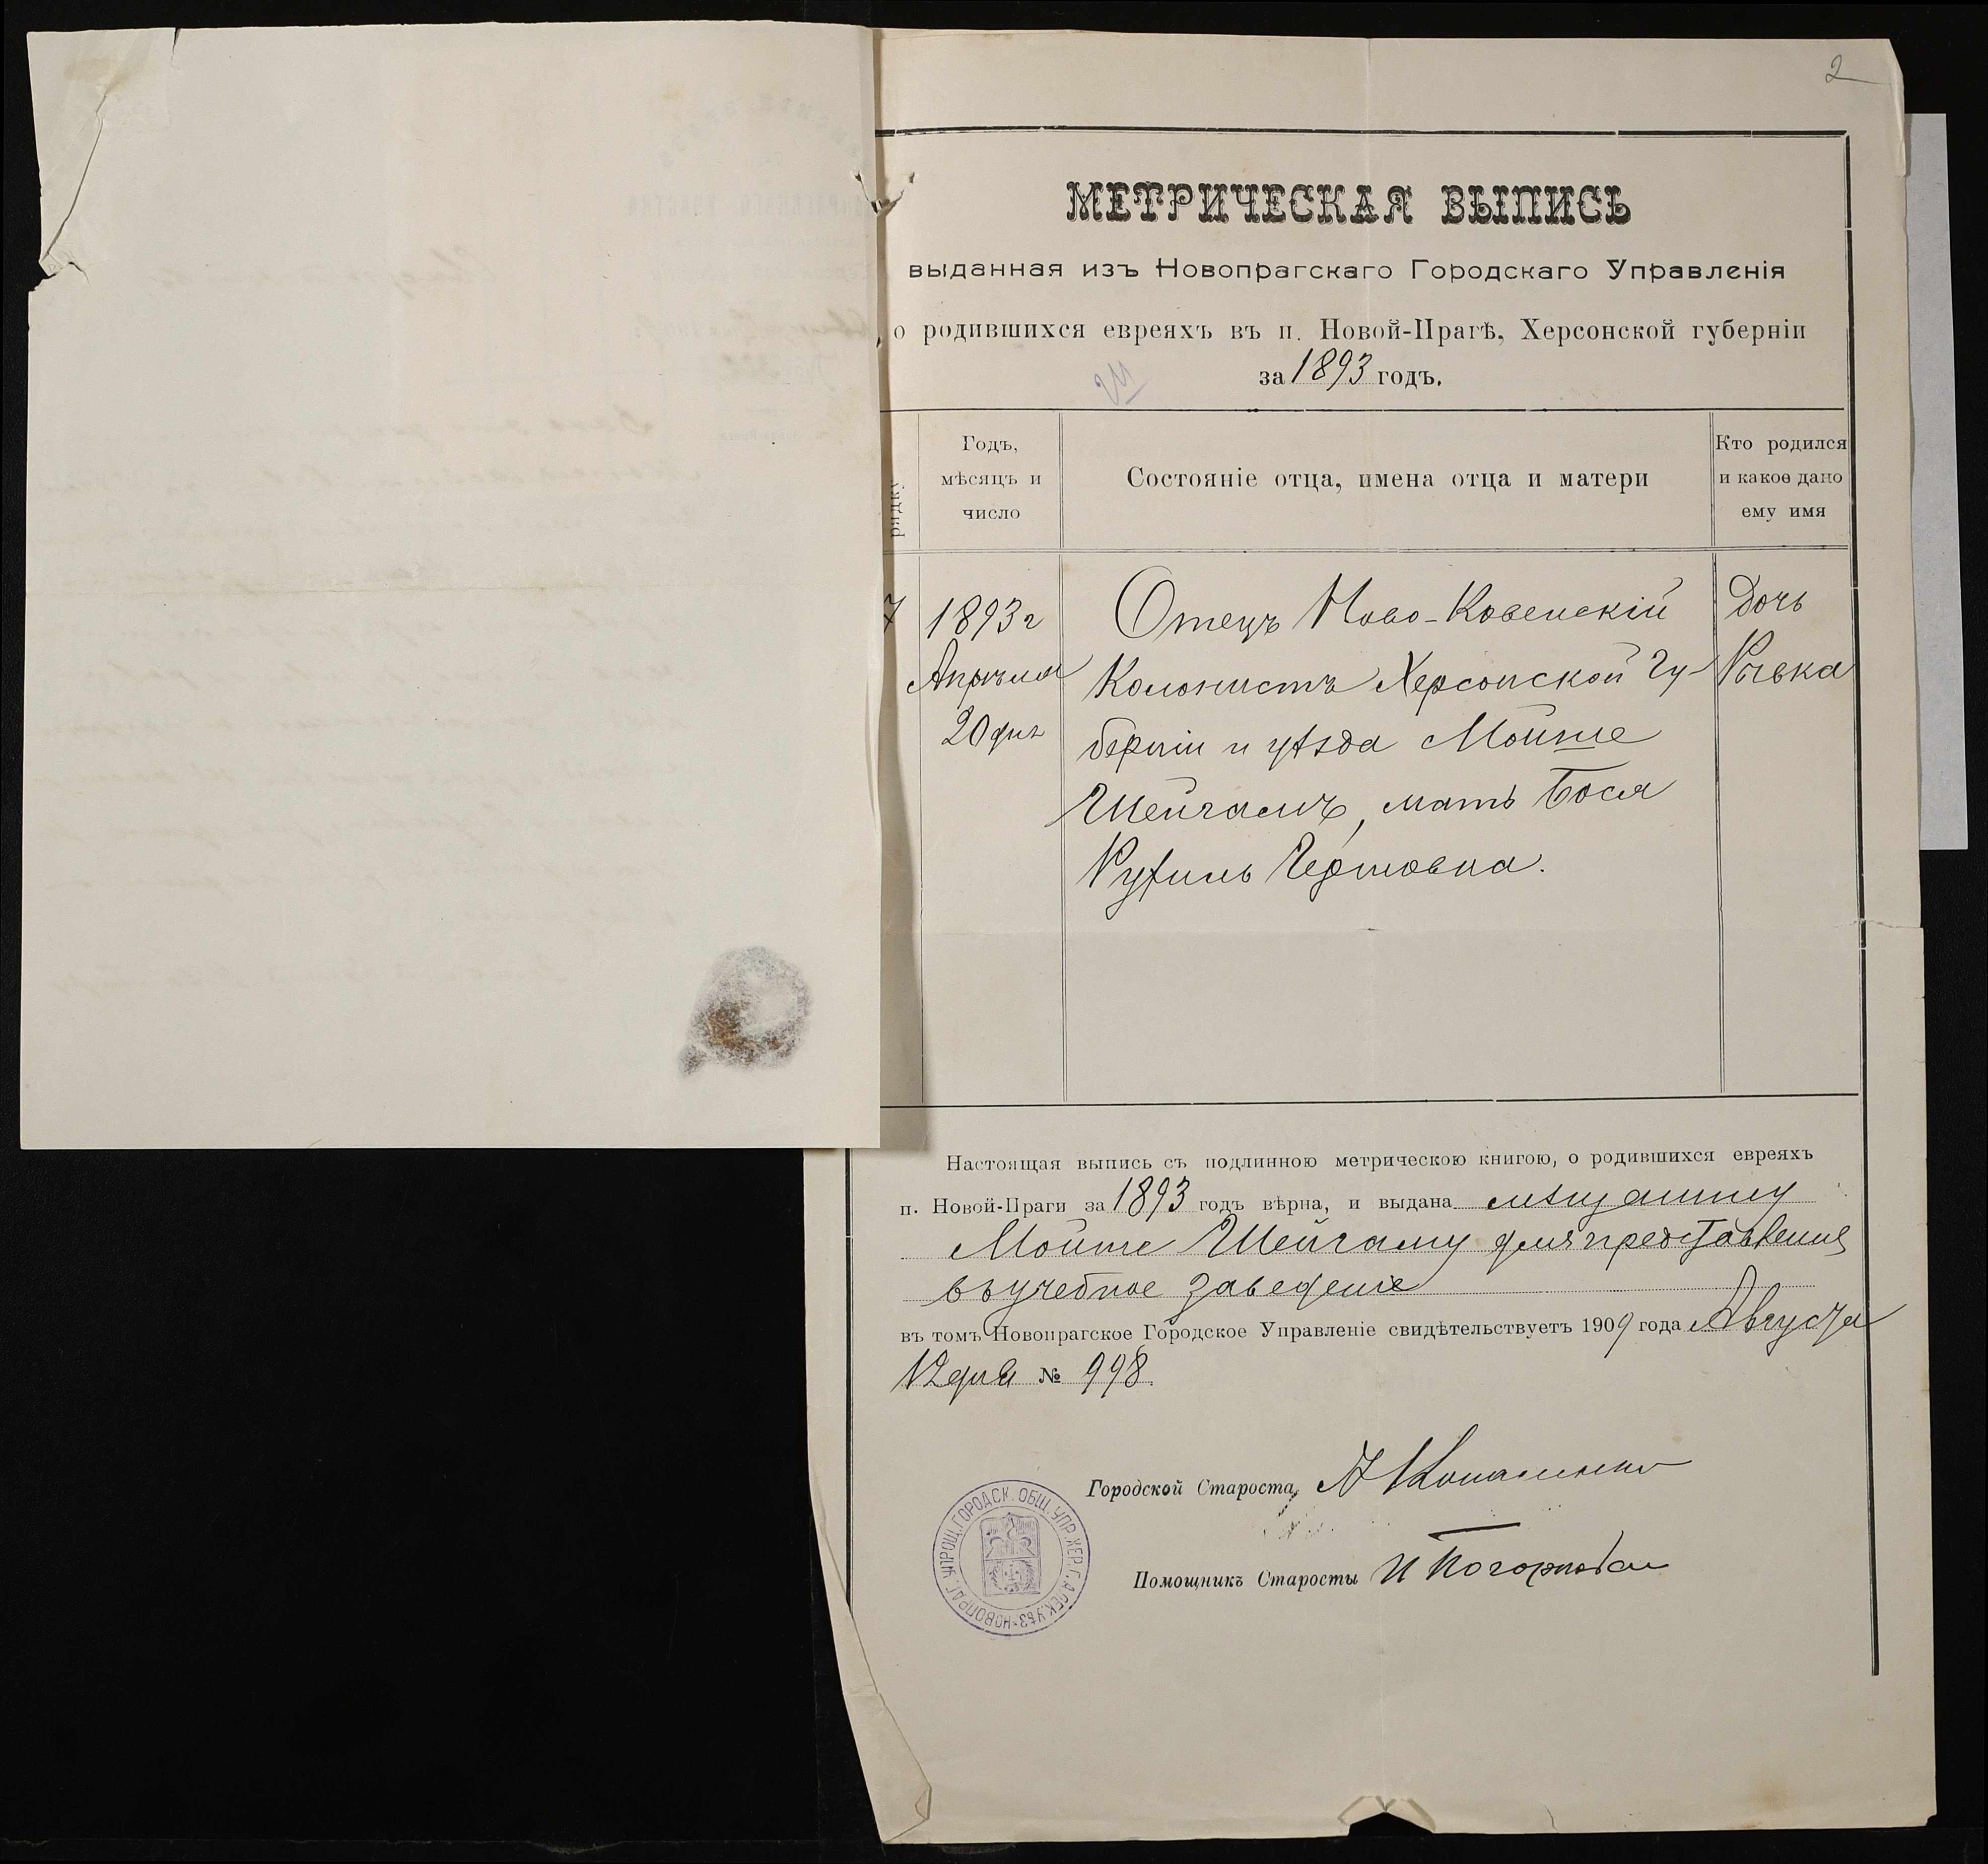 2
МЕТРИЧЕСКАЯ ВЫПИСЬ
выданная изъ Новопрагскаго Городскаго Управленія
о родившихся евреяхъ въ п. Новой-Прагѣ, Херсонской губерніи
за 1893 годъ.
рядку
Годъ,
мѣсяцъ и
число
Состояніе отца, имена отца и матери
Кто родился
и какое дано
ему имя
7
1893 г
Апрѣля
20 дня
Отецъ Ново-Ковенскій
Колонистъ Херсонской Гу-
берніи и уѣзда Мойше
Шейгамъ, мать Бося
Рухиль Гершовна.
Дочь
Ривка
Настоящая выпись съ подлинною метрическою книгою, о родившихся евреяхъ
п. Новой-Праги за 1893 годъ вѣрна, и выдана мѣщанину
Мойше Шейгаму для представленія
въ учебное заведеніе
въ томъ Новопрагское Городское Управленіе свидѣтельствуетъ 1909 года Августа
12 дня № 998.
Городской Староста
Помощникъ Старосты И
НОВОПРАГ. УПРОЩ. ГОРОДСК. ОБЩ. УПР. ХЕР. Г. АЛЕК. УѢЗ.